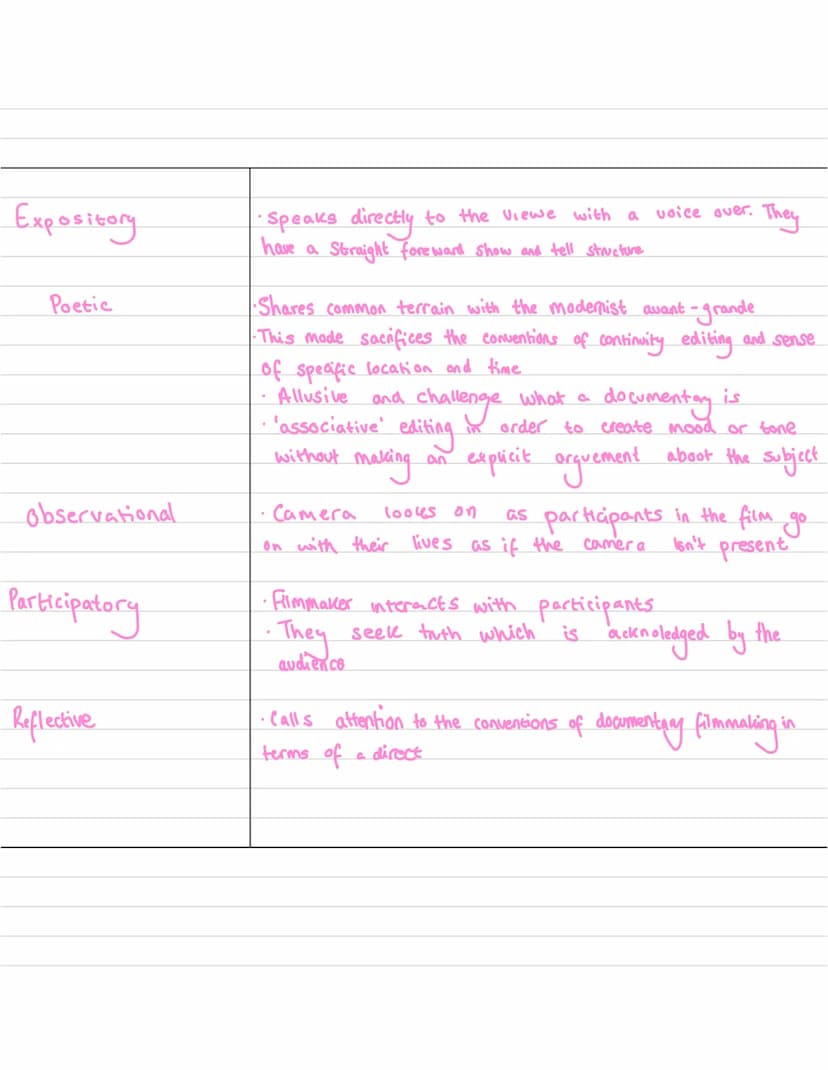 Expository
· speaks directly to the viewe with a voice over. They
have a straight foreward show and tell structure
Poetic
· Shares common terrain with the modernist avant-grande
· This mode sacrifices the conventions of continuity editing and sense
of specific location and time
· Allusive and challenge what a documentary is
· 'associative' editing in order to create mood or tone
without making an explicit arguement about the subject
Observational
· Camera looks on as participants in the film go
on with their lives as if the camera isn't present
Participatory
· Filmmaker interacts with participants
· They seek truth which is acknoledged by the
audience
Reflective
· Calls attention to the conventions of documentary filmmaking in
terms of a direct